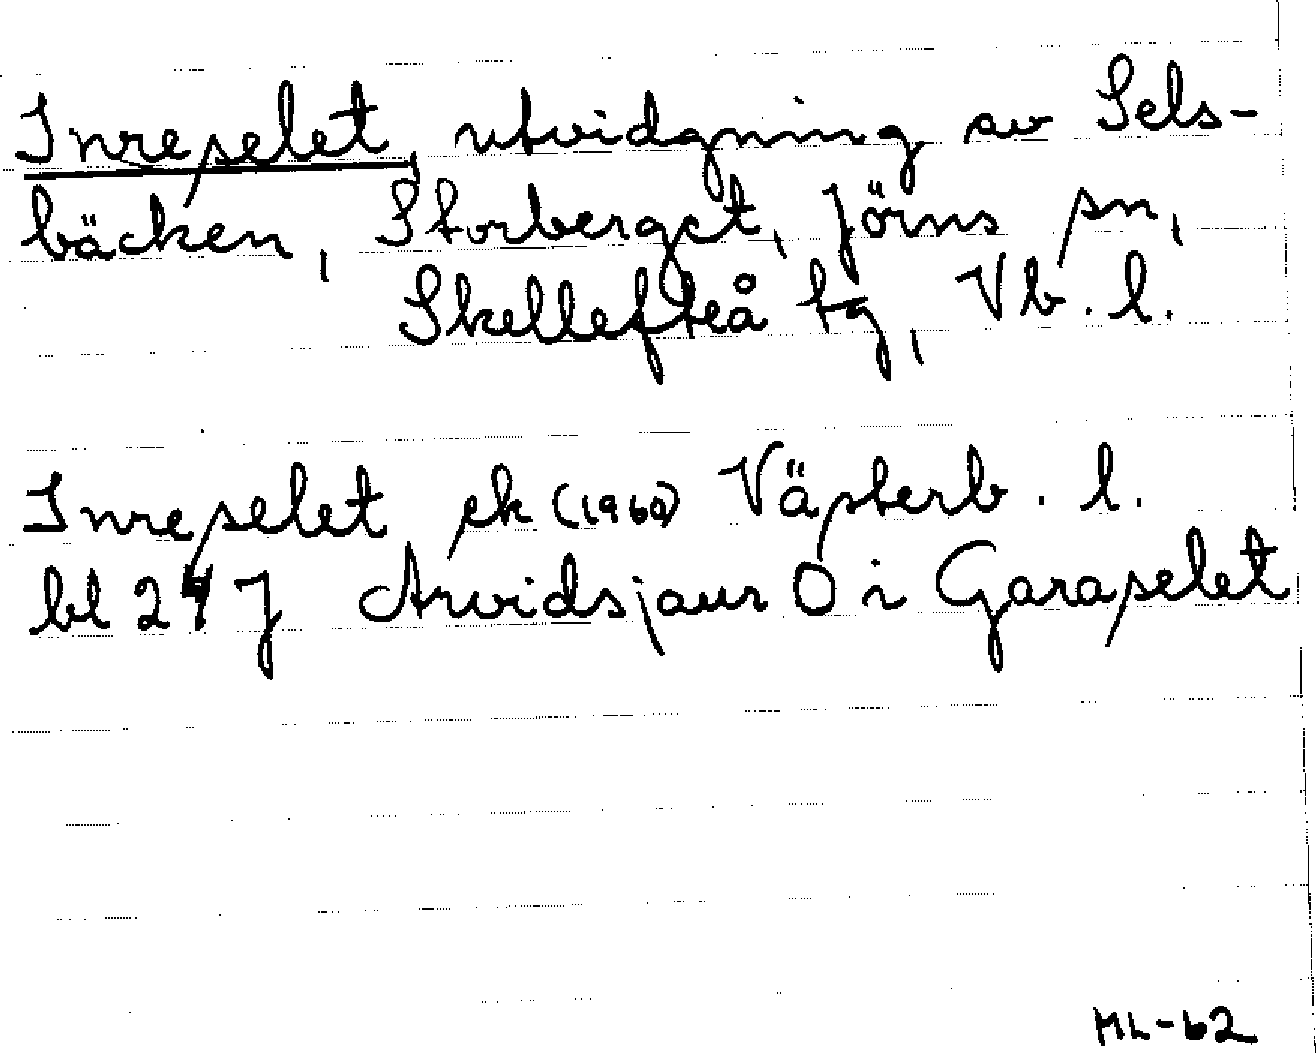 Inreselet, utvidgning av Sels-
bäcken, Storberget, Jörns sn,
Skellefteå tg, Vb. l.
Inreselet ek (1960) Västerb. l.
bl 24 J Arvidsjaur O i Garaselet
ML-62